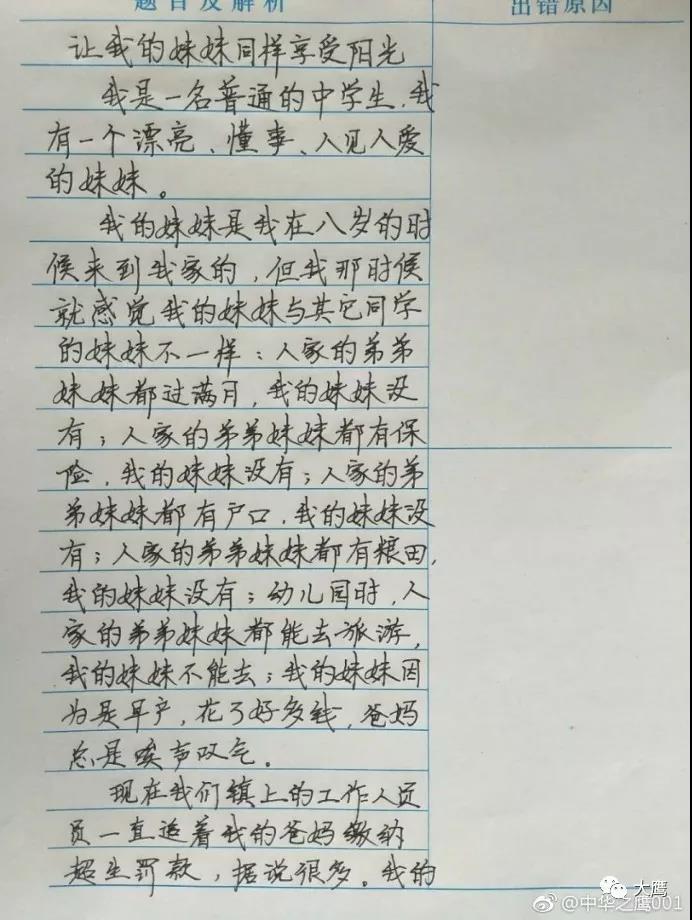 题目及解析
出错原因
让我的妹妹同样享受阳光
我是一名普通的中学生,我
有一个漂亮、懂事、人见人爱
的妹妹。
我的妹妹是我在八岁的时
候来到我家的,但我那时候
就感觉我的妹妹与其它同学
的妹妹不一样:人家的弟弟
妹妹都过满月,我的妹妹没
有;人家的弟弟妹妹都有保
险,我的妹妹没有;人家的弟
弟妹妹都有户口,我的妹妹没
有;人家的弟弟妹妹都有粮田,
我的妹妹没有;幼儿园时,人
家的弟弟妹妹都能去旅游,
我的妹妹不能去;我的妹妹因
为是早产,花了好多钱,爸妈
总是唉声叹气。
现在我们镇上的工作人员
员一直追着我的爸妈缴纳
超生罚款,据说很多。我的
大鹰
@中华之鹰001